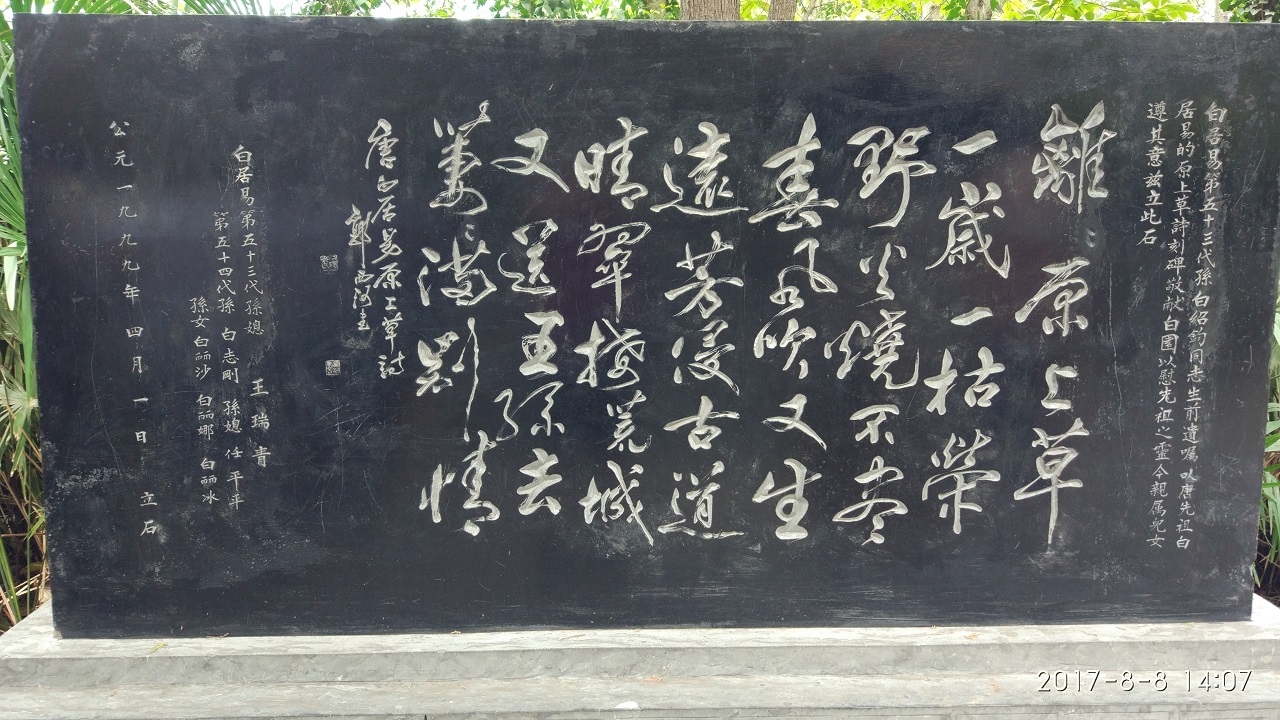 白居易第五十三代孫白紹約同志生前遺囑以唐先祖白
居易的原上草詩刻碑敬献白園以慰先祖之靈今親属兒女
遵其意兹立此石
離々原上草
一歲一枯榮
野火燒不尽
春風吹又生
遠芳侵古道
晴翠接荒城
又送王孫去
萋々滿別情
唐白居易原上草詩
白居易第五十三代孫媳 王瑞青
第五十四代孫 白志剛 孫媳 任平平
孫女白丽沙 白丽娜 白丽冰
公元一九九九年四月一日 立石
2017-8-8 14:07